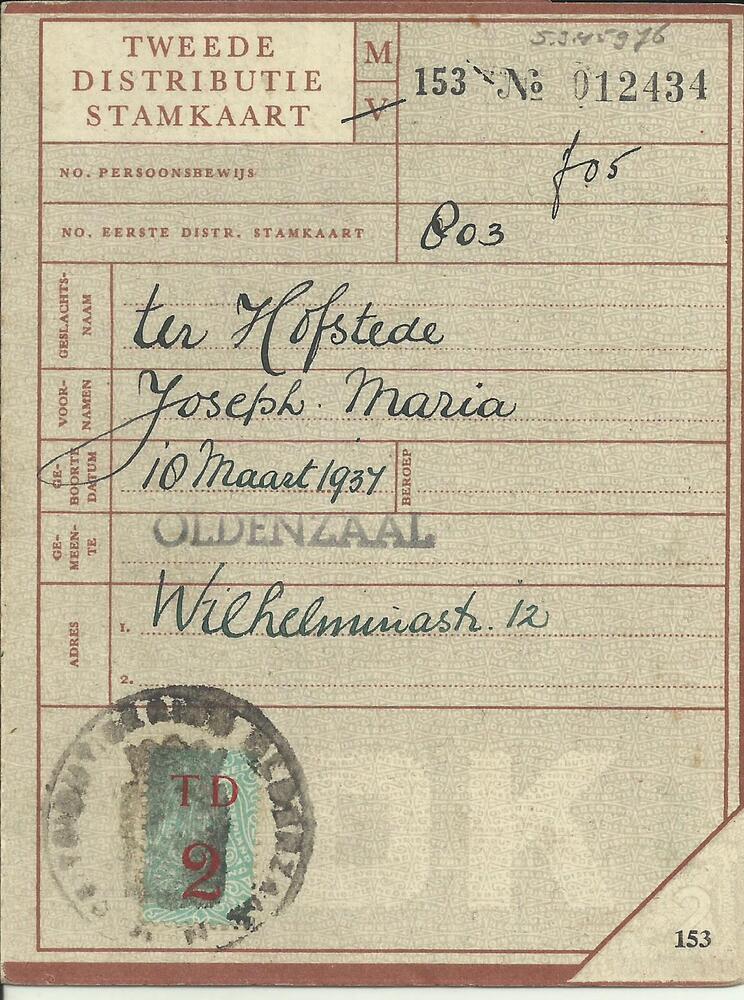 TWEEDE
DISTRIBUTIE
STAMKAART
M
V
153 № 012434
NO. PERSOONSBEWIJS
705
NO. EERSTE DISTR. STAMKAART
803
GESLACHTS-
NAAM
ter Hofstede
VOOR-
NAMEN
Joseph. Maria
GE-
BOORTE
DATUM
10 Maart 1937
BEROEP
GE-
MEEN-
TE
OLDENZAAL
ADRES
1. Wilhelminastr. 12
2.
TD
2
DK
153